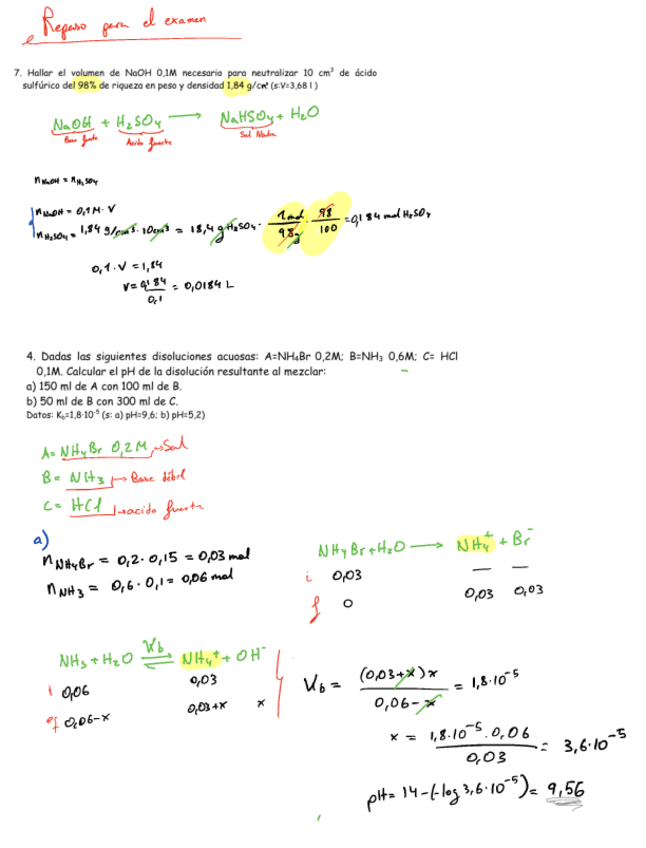 Repaso para el examen
7. Hallar el volumen de NaOH 0,1M necesario para neutralizar 10 cm³ de ácido
sulfúrico del 98% de riqueza en peso y densidad 1,84 g/cm³ (s:V=3,68 l)
NaOH + H₂SO₄ → NaHSO₄ + H₂O
Base fuerte Acido fuerte Sal Neutra
nNaOH = nH₂SO₄
nNaOH = 0,1 M · V
nH₂SO₄ = 1,84 g/cm³ · 10cm³ = 18,4 g H₂SO₄ · 1mol/98g · 98/100 = 0,184 mol H₂SO₄
0,1 · V = 1,84
V = 0,184/0,1 = 0,0184 L
4. Dadas las siguientes disoluciones acuosas: A=NH₄Br 0,2M; B=NH₃ 0,6M; C= HCl
0,1M. Calcular el pH de la disolución resultante al mezclar:
a) 150 ml de A con 100 ml de B.
b) 50 ml de B con 300 ml de C.
Datos: Kb=1,8·10⁻⁵ (s: a) pH=9,6; b) pH=5,2)
A = NH₄Br 0,2M → Sal
B = NH₃ → Base débil
C = HCl → acido fuerte
a)
nNH₄Br = 0,2 · 0,15 = 0,03 mol
nNH₃ = 0,6 · 0,1 = 0,06 mol
NH₄Br + H₂O → NH₄⁺ + Br⁻
i 0,03 — —
f 0 0,03 0,03
NH₃ + H₂O ⇌ Kb NH₄⁺ + OH⁻
i 0,06 0,03
ef 0,06-x 0,03+x x
Kb = (0,03+x)x / 0,06-x = 1,8·10⁻⁵
x = 1,8·10⁻⁵ · 0,06 / 0,03 = 3,6·10⁻⁵
pH = 14 - (-log 3,6·10⁻⁵) = 9,56